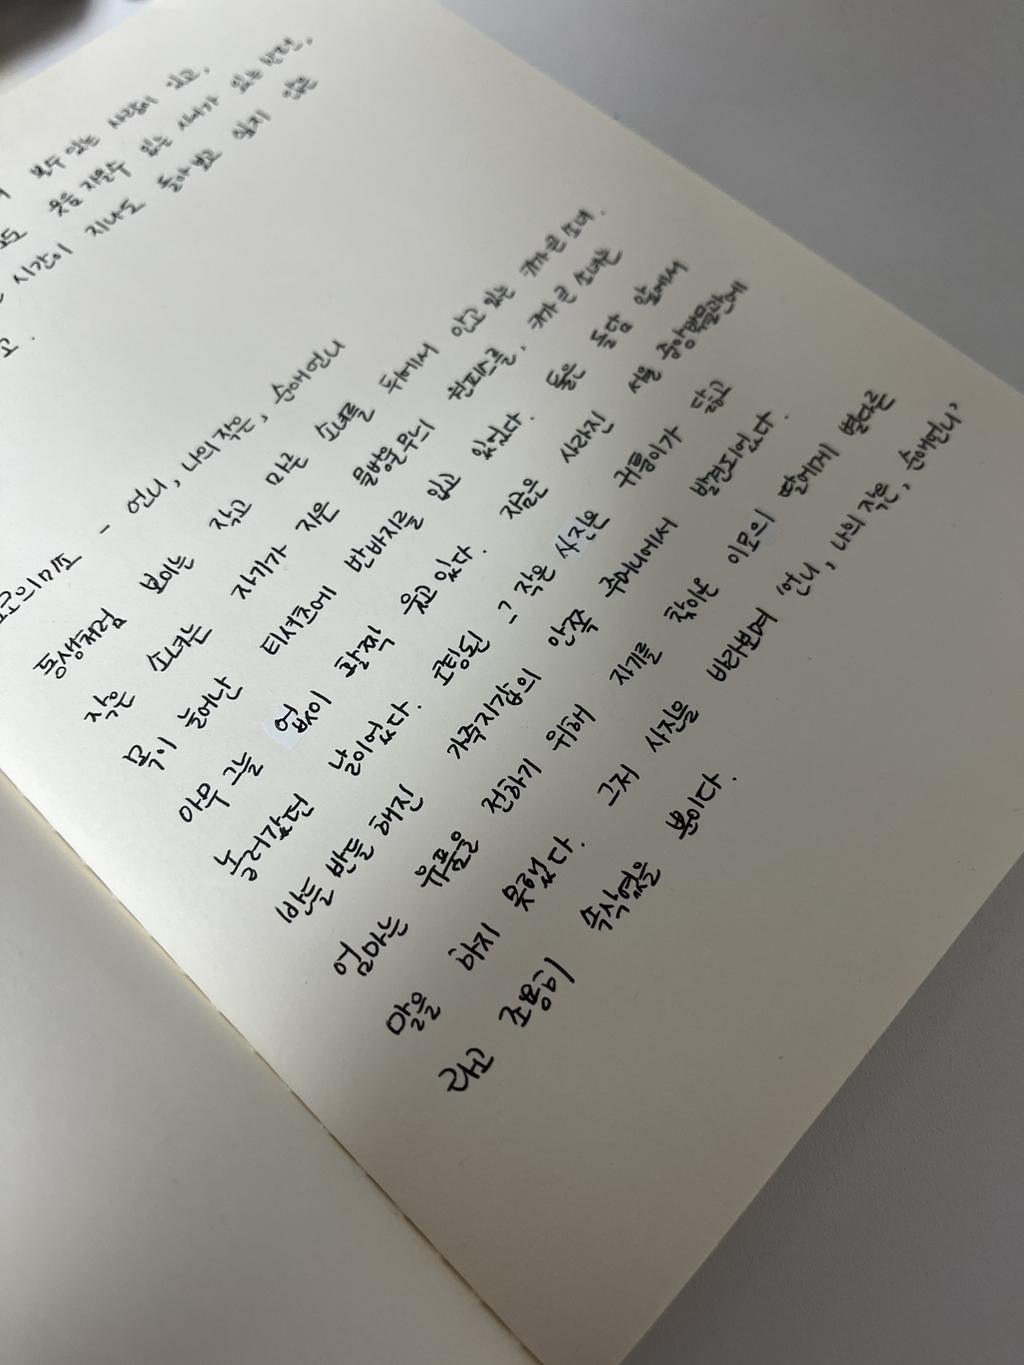 볼수 있는 사람이 있고,
웃음 지을수 있는 시기가 있는 반면,
시간이 지나도 돌아보고 싶지 않은
고.
쇼코의미소 - 언니, 나의 작은, 순애언니
동생처럼 보이는 작고 마른 소녀를 뒤에서 안고 있는 키가 큰 소녀.
작은 소녀는 자기가 지은 물방울무늬 원피스를, 키가 큰 소녀는
목이 늘어난 티셔츠에 반바지를 입고 있었다. 둘은 돌담 앞에서
아무 그늘 없이 활짝 웃고 있다. 지금은 사라진 서울 중앙박물관에
놀러갔던 날이었다. 코팅된 그 작은 사진은 귀퉁이가 닳고
반들반들 해진 가죽지갑의 안쪽 주머니에서 발견되었다.
엄마는 유품을 전하기 위해 자기를 찾아온 이모의 딸에게 별다른
말을 하지 못했다. 그저 사진을 바라보며 '언니, 나의 작은, 순애언니'
라고 조용히 속삭였을 뿐이다.